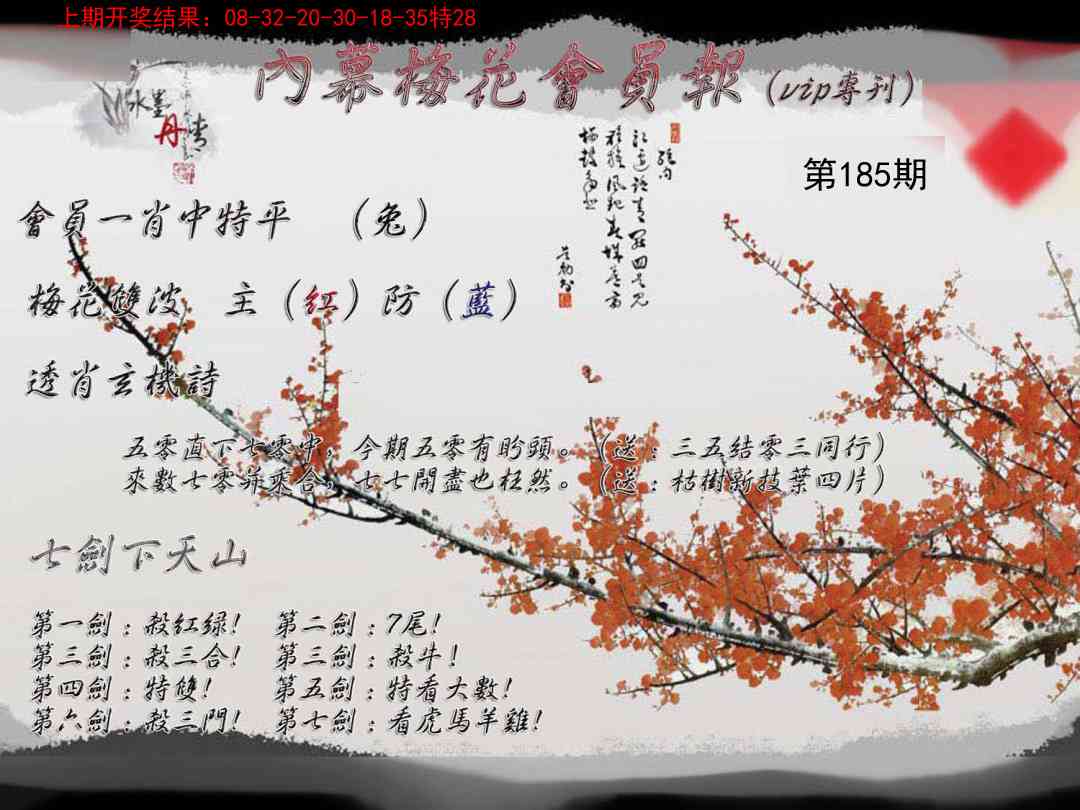 上期开奖结果：08-32-20-30-18-35特28
內幕梅花會員報（vip專刊）
水墨
丹青
第185期
會員一肖中特平　（兔）
梅花雙波　主（红）防（藍）
透肖玄機詩
五零直下七零中，今期五零有盼頭。（送：三五结零三同行）
來數七零并乘合，七七開盡也枉然。（送：枯樹新技葉四片）
七劍下天山
第一劍：殺红绿！　第二劍：7尾！
第三劍：殺三合！　第三劍：殺牛！
第四劍：特雙！　第五劍：特看大數！
第六劍：殺三門！　第七劍：看虎馬羊雞！